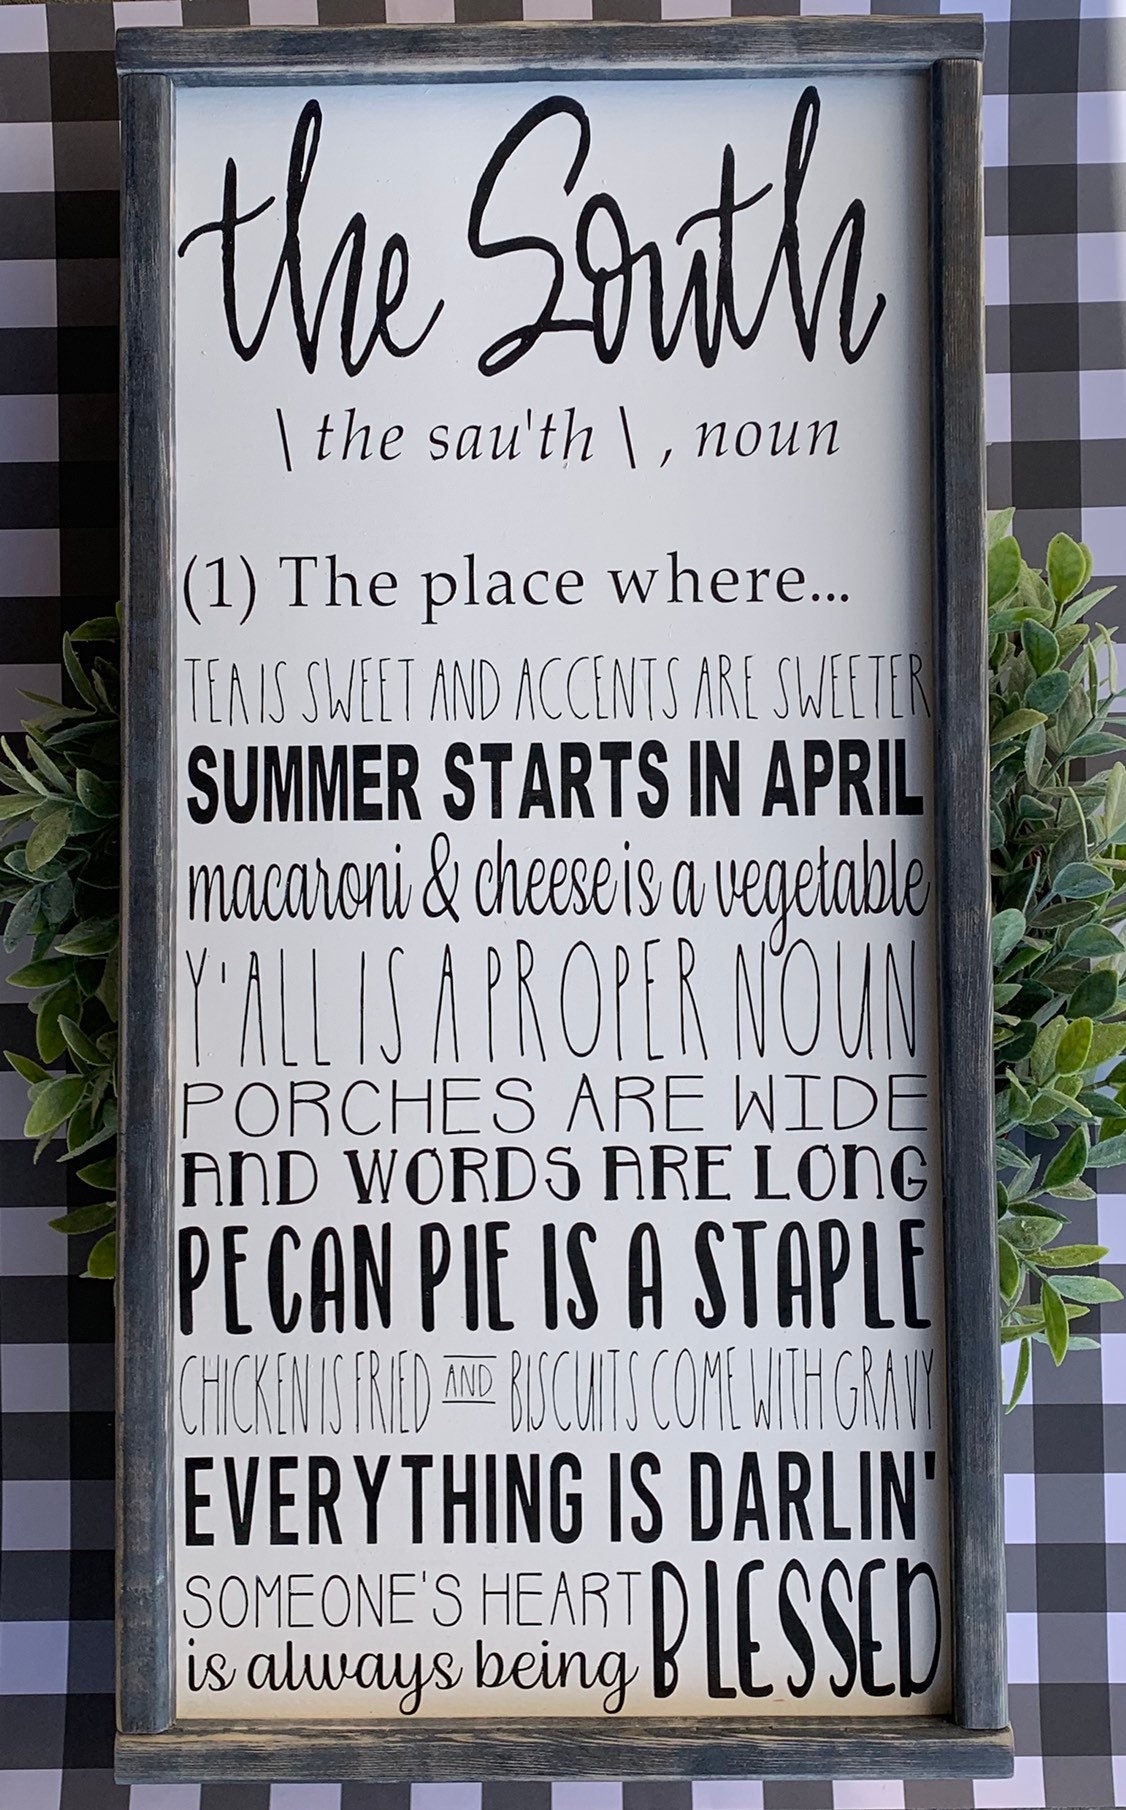 the South
\ the sau'th \ , noun
(1) The place where...
TEA IS SWEET AND ACCENTS ARE SWEETER
SUMMER STARTS IN APRIL
macaroni & cheese is a vegetable
Y'ALL IS A PROPER NOUN
PORCHES ARE WIDE
AND WORDS ARE LONG
PECAN PIE IS A STAPLE
CHICKEN IS FRIED AND BISCUITS COME WITH GRAVY
EVERYTHING IS DARLIN'
SOMEONE'S HEART
is always being BLESSED